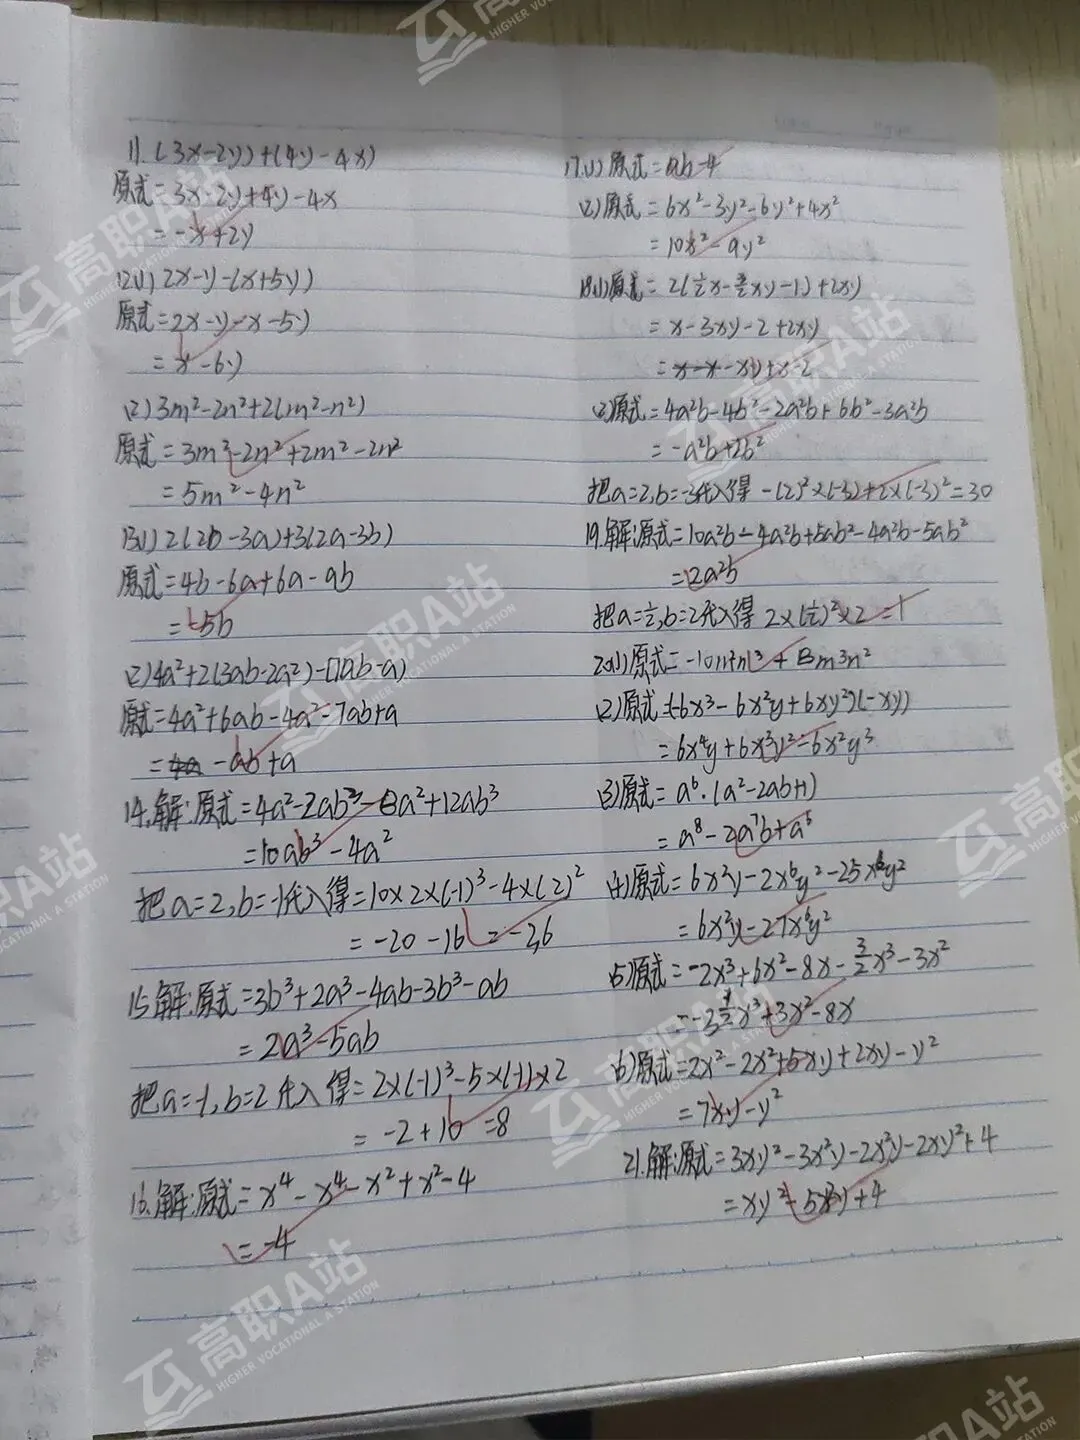 11.(3x-2y)+(4y-4x)
原式=3x-2y+4y-4x
=-x+2y
12(1) 2x-y-(x+5y)
原式=2x-y-x-5y
=x-6y
(2)3m²-2n²+2(m²-n²)
原式=3m²-2n²+2m²-2n²
=5m²-4n²
13(1)2(2b-3a)+3(2a-3b)
原式=4b-6a+6a-9b
=-5b
(2)4a²+2(3ab-2a²)-(7ab-a)
原式=4a²+6ab-4a²-7ab+a
=-ab+a
14.解:原式=4a²-2ab³-8a²+12ab³
=10ab³-4a²
把a=2,b=-1代入得=10×2×(-1)³-4×(2)²
=-20-16=-36
15.解:原式=3b³+2a³-4ab-3b³-ab
=2a³-5ab
把a=-1,b=2代入得=2×(-1)³-5×(-1)×2
=-2+10=8
16.解:原式=x⁴-x⁴-x²+x²-4
=-4
17.(1)原式=ab-4
(2)原式=6x²-3y²-6y²+4x²
=10x²-9y²
18.(1)原式=2(½x-3/2xy-1)+2xy
=x-3xy-2+2xy
=-xy+x-2
(2)原式=4a²b-4b²-2a²b+6b²-3a²b
=-a²b+2b²
把a=2,b=-3代入得-(2)²×(-3)+2×(-3)²=30
19.解:原式=10a²b-4a²b+5ab²-4a²b-5ab²
=2a²b
把a=½,b=2代入得 2×(½)²×2=1
(2)原式=(-6x³-6x²y+6xy²)(-xy)
=6x⁴y+6x³y²-6x²y³
(3)原式=a⁶·(a²-2ab+1)
=a⁸-2a⁷b+a⁶
(4)原式=6x²y-2x⁶y²-25x⁶y²
=6x²y-27x⁶y²
(5)原式=-2x³+6x²-8x-3/2x³-3x²
(6)原式=2x²-2x²+5xy+2xy-y²
=7xy-y²
21.解:原式=3xy²-3x²y-2x²y-2xy²+4
=xy²-5x²y+4
高职A站
HIGHER VOCATIONAL A STATION